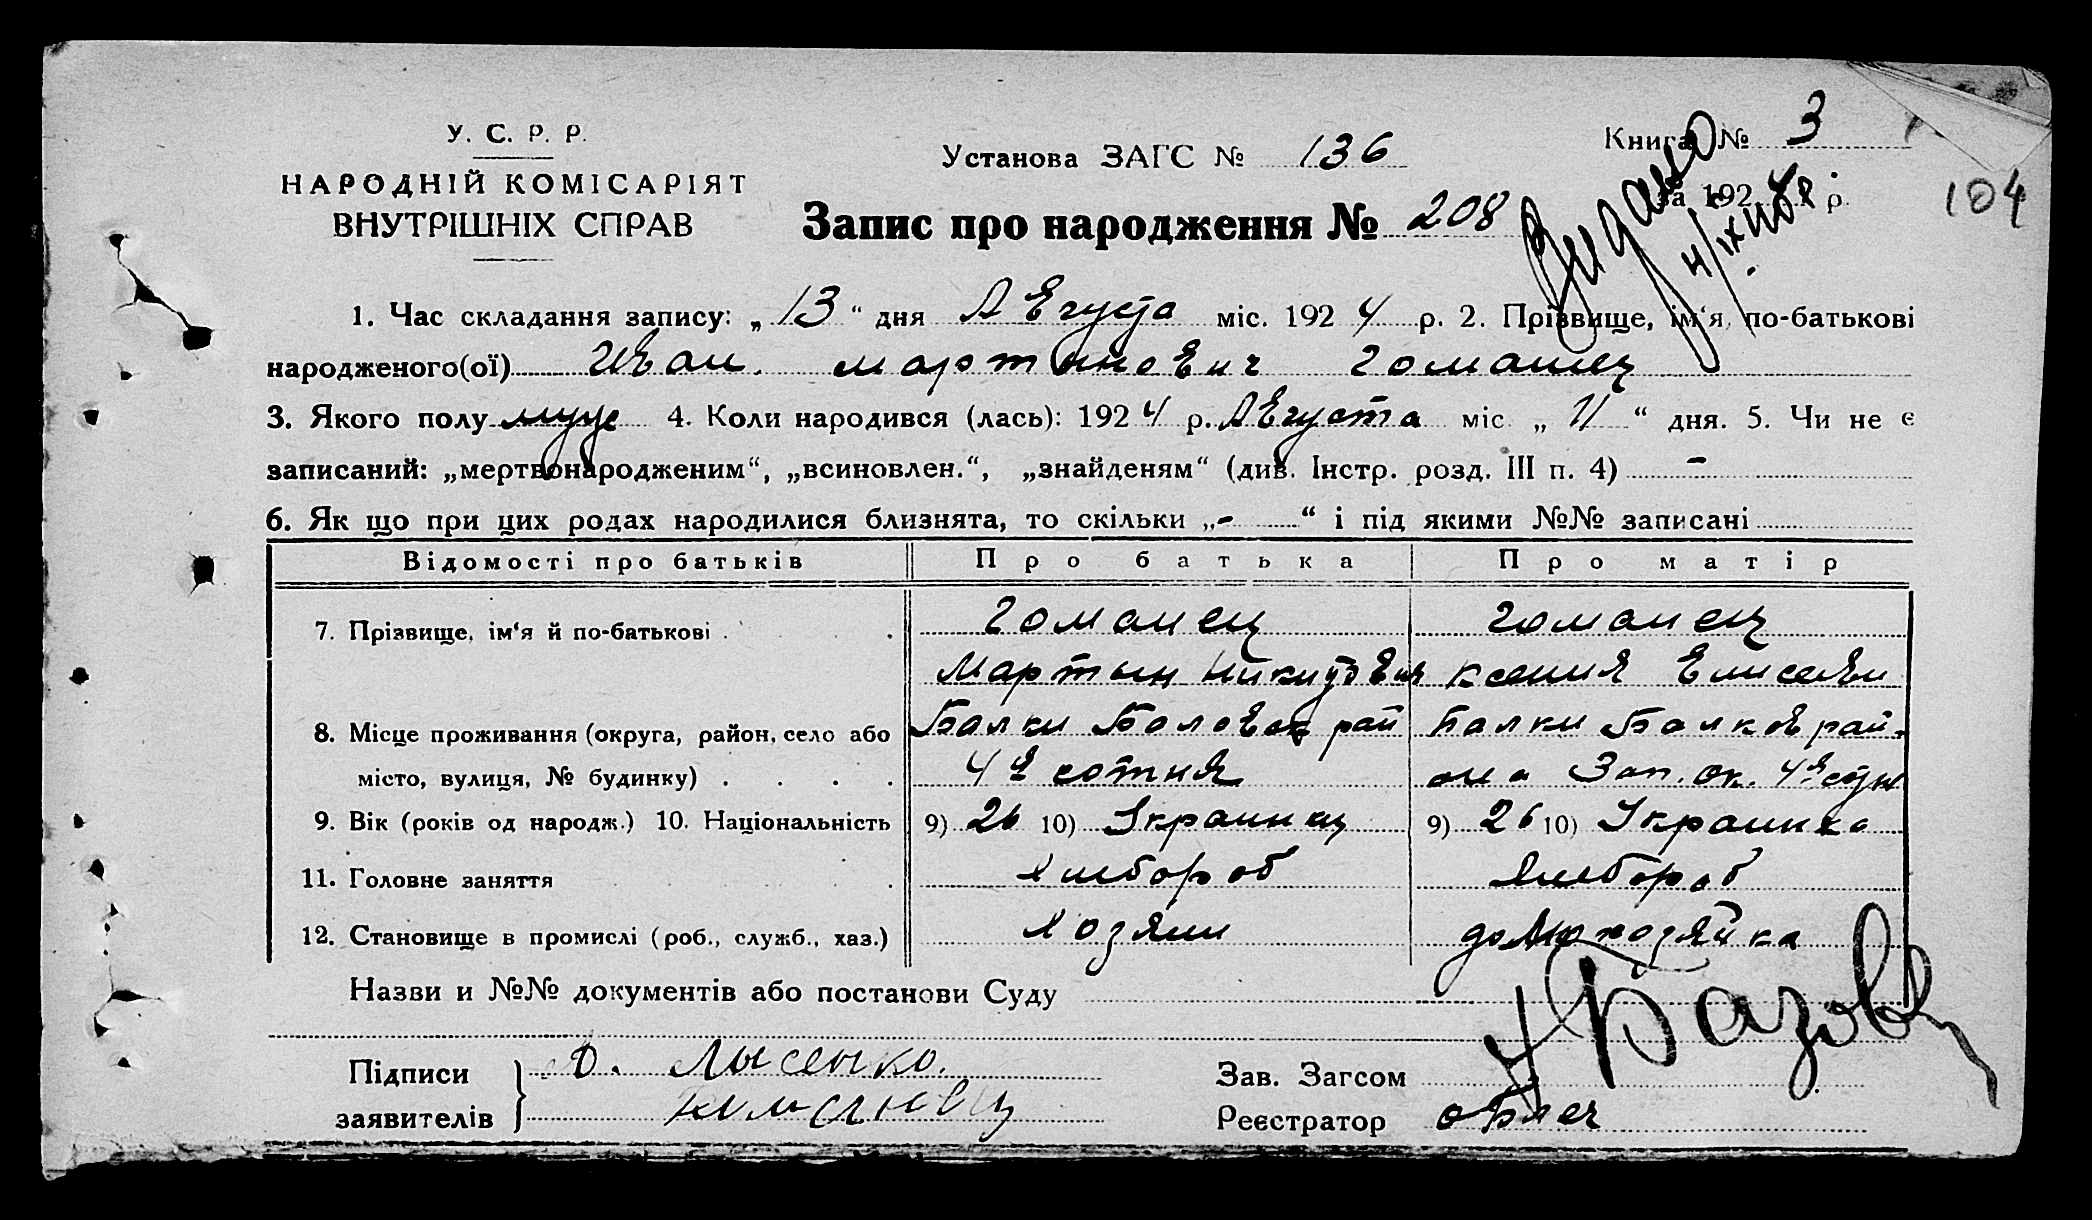 У. С. Р. Р.
НАРОДНІЙ КОМІСАРІЯТ
ВНУТРІШНІХ СПРАВ
Установа ЗАГС № 136
Книга № 3
за 192 4 р.
104
Запис про народження № 208
Видано
4/IX
1. Час складання запису: „ 13 “ дня Августа міс. 192 4 р. 2. Прізвище, ім‘я, по-батькові
народженого(ої) Иван Мартинович Гоманец
3. Якого полу муж 4. Коли народився (лась): 192 4 р. Августа міс. „ 11 “ дня. 5. Чи не є
записаний: „мертвонародженим“, „всиновлен.“, „знайденям“ (див. Інстр. розд. III п. 4) -
6. Як що при цих родах народилися близнята, то скільки „ - “ і під якими №№ записані
Відомості про батьків Про батька Про матір
7. Прізвище, ім‘я й по-батькові . . Гоманец Гоманец
Мартын Ксения Елисеевн
8. Місце проживання (округа, район, село або Балки рай Балки Балков рай-
місто, вулиця, № будинку) . . . . 4я сотня она Зап. ок. 4я
9. Вік (років од народж.) 10. Національність 9) 26 10) Украинец 9) 26 10) Украинка
11. Головне заняття . Хлебороб Хлебороб
12. Становище в промислі (роб., служб., хаз.) Хозяин домохозяйка
Назви и №№ документів або постанови Суду
Підписи
заявителів
Лысенко.
Зав. Загсом
Реєстратор